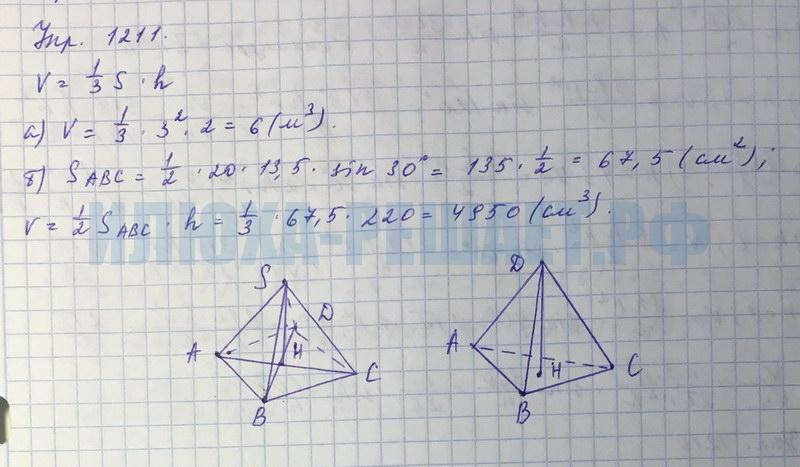 Упр. 1211.
V = 1/3 S · h
а) V = 1/3 · 3² · 2 = 6 (м³).
б) S ABC = 1/2 · 20 · 13,5 · sin 30° = 135 · 1/2 = 67,5 (см²);
V = 1/2 S ABC · h = 1/3 · 67,5 · 220 = 4950 (см³).
ИЛЮХА-РЕШАЕТ.РФ
S
D
A
H
C
B
D
A
H
C
B